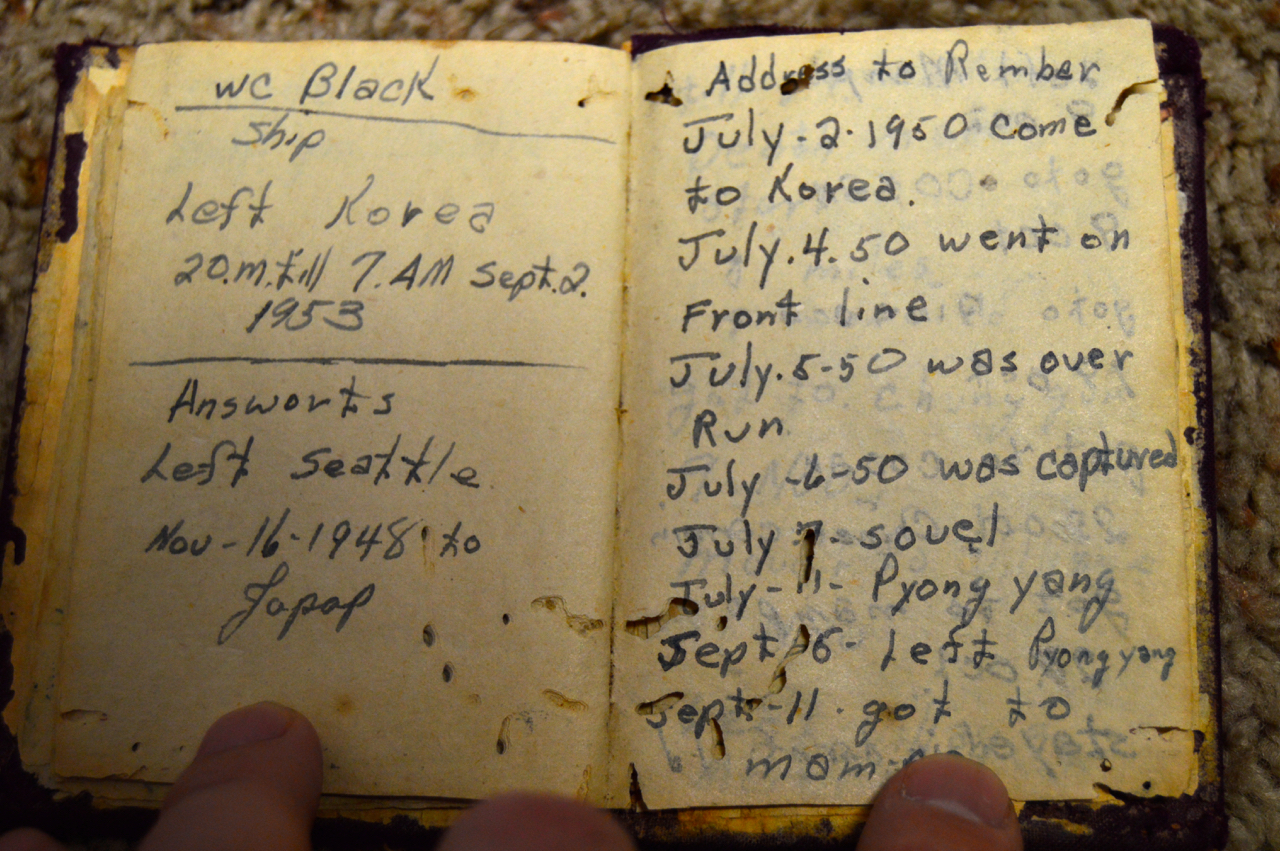 wc Black
Ship
Left Korea
20.m.till 7.AM Sept.2.
1953
Answorts
Left Seattle
Nov-16-1948 to
Japap
Address to Rember
July-2-1950 Come
to Korea.
July.4.50 went on
Front line
July.5-50 was over
Run
July -6-50 was captured
July 7- souel
July-11- Pyong yang
Sept 6- Left Pyong yang
Sept-11. got to
mom-